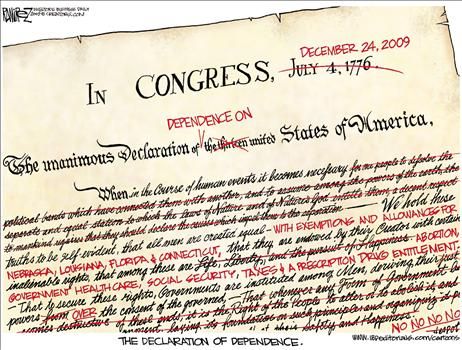 RAMIREZ
INVESTOR'S BUSINESS DAILY
DECEMBER 24, 2009
IN CONGRESS, JULY 4, 1776.
DEPENDENCE ON
The unanimous Declaration of the thirteen united States of America,
When in the Course of human events it becomes necessary for one people to dissolve the
political bands which have connected them with another, and to assume among the powers of the earth, the
separate and equal station to which the Laws of Nature and of Nature's God entitle them, a decent respect
to mankind requires that they should declare the causes which impel them to the separation. — We hold these
truths to be self-evident, that all men are created equal - WITH EXEMPTIONS AND ALLOWANCES FOR
NEBRASKA, LOUISIANA, FLORIDA & CONNECTICUT, that they are endowed by their Creator with certain
inalienable rights that among these are Life, Liberty, and the pursuit of Happiness. ABORTION,
GOVERNMENT HEALTH CARE, SOCIAL SECURITY, TAXES & A PRESCRIPTION DRUG ENTITLEMENT.
That to secure these rights, Governments are instituted among Men, deriving their just
powers from OVER the consent of the governed, — That whenever any Form of Government be
comes destructive of these ends, it is the Right of the People to alter or to abolish it and
laying its foundation on such principles and organizing its
Safety and Happiness. NO NO NO NO
THE DECLARATION OF DEPENDENCE.
www.ibdeditorials.com/cartoons